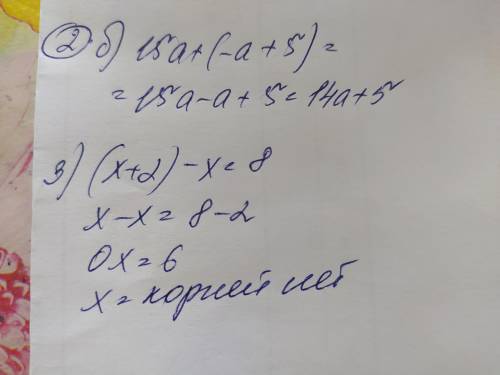 ② б) 15a+(-a+5)=
=15a-a+5=14a+5
3) (x+2)-x=8
x-x=8-2
0x=6
x=корней нет